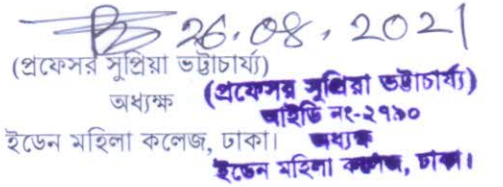 26.08.2021
(প্রফেসর সুপ্রিয়া ভট্টাচার্য্য)
অধ্যক্ষ
ইডেন মহিলা কলেজ, ঢাকা।
(প্রফেসর সুপ্রিয়া ভট্টাচার্য্য)
আইডি নং-২৭৯০
অধ্যক্ষ
ইডেন মহিলা কলেজ, ঢাকা।